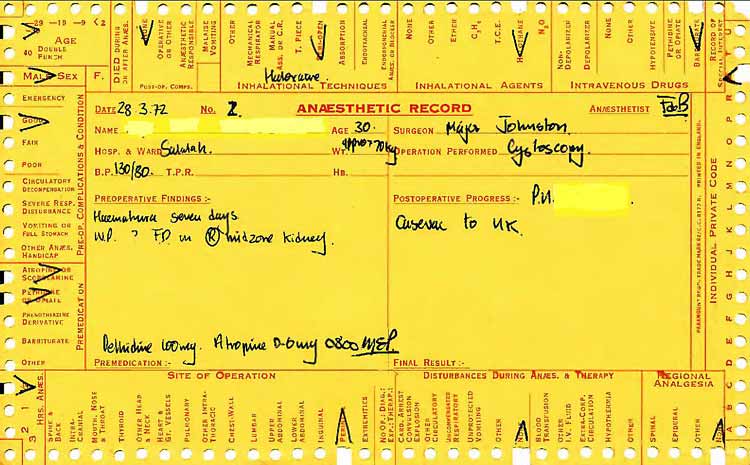 29 –19 –9 <2
AGE
40 DOUBLE PUNCH
MALE SEX F.
DIED DURING OR AFTER ANÆS.
NONE
OPERATIVE OR OTHER
ANÆSTHETIC RESPONSIBLE
MALAISE VOMITING
OTHER
POST-OP. COMPS.
MECHANICAL RESPIRATOR
MANUAL ASS. OR C.R.
T. PIECE
ABSORPTION
ENDOTRACHEAL
Halozone.
INHALATIONAL TECHNIQUES
NONE
OTHER
ETHER
C₃H₆
T.C.E.
HALOTHANE
N₂O
INHALATIONAL AGENTS
NON-DEPOLARIZER
DEPOLARIZER
NONE
OTHER
HYPOTENSIVE
PETHIDINE OR OPIATE
BARBITURATE
INTRAVENOUS DRUGS
RECORD OF SPECIAL INTEREST
EMERGENCY
GOOD
FAIR
POOR
CIRCULATORY DECOMPENSATION
SEVERE RESP. DISTURBANCE
VOMITING OR FULL STOMACH
OTHER ANÆS. HANDICAP
PRE-OP. COMPLICATIONS & CONDITION
ATROPINE OR SCOPOLAMINE
PETHIDINE OR OPIATE
PHENOTHIAZINE DERIVATIVE
BARBITURATE
OTHER
PREMEDICATION
DATE 28.3.72 NO. 2. ANÆSTHETIC RECORD ANÆSTHETIST
NAME AGE 30. SURGEON Major Johnston.
HOSP. & WARD Salalah. WT. approx 70kg OPERATION PERFORMED Cystoscopy.
B.P. 130/80. T.P.R. HB.
PREOPERATIVE FINDINGS :- POSTOPERATIVE PROGRESS :- P.U.
Haematuria seven days Casevac to UK.
I.V.P. ? F.D. in (R) midzone kidney.
Pethidine 100mg. Atropine 0.6mg 0800
PREMEDICATION :- FINAL RESULT :-
PARAMOUNT REGD. TRADE MARK
PRINTED IN ENGLAND.
INDIVIDUAL PRIVATE CODE
SITE OF OPERATION DISTURBANCES DURING ANÆS. & THERAPY REGIONAL ANALGESIA
3 2 1
HRS. ANÆS.
SPINE & BACK
INTRA-CRANIAL
MOUTH, NOSE & THROAT
THYROID
OTHER HEAD & NECK
HEART & GT. VESSELS
PULMONARY
OTHER INTRA-THORACIC
CHEST-WALL
LUMBAR
UPPER ABDOMINAL
LOWER ABDOMINAL
INGUINAL
EXTREMITIES
NO OP.; DIAG.; EXP.; THERAP.
CARD. ARREST CONVULSION EXPLOSION
OTHER CIRCULATORY
UNCOMPENSATED RESPIRATORY
UNPROTECTED VOMITING
OTHER
BLOOD TRANSFUSION
OTHER I.V. FLUID
EXTRA-CORP. CIRCULATION
HYPOTHERMIA
OTHER
SPINAL
EPIDURAL
OTHER
A B C D E F G H I J K L M N O P R